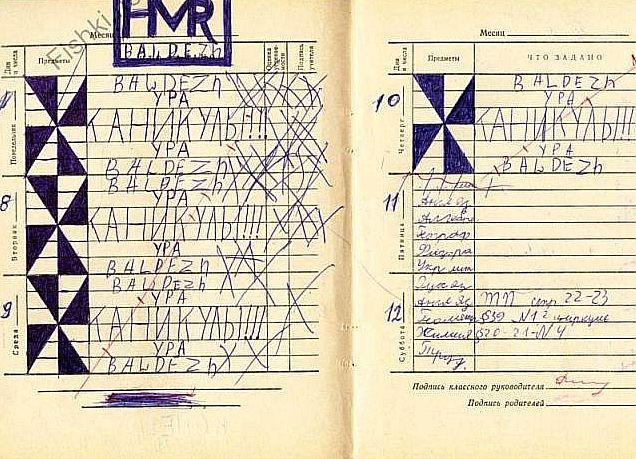 Fishki
HMR
Месяц BALDEZH
Дни и числа Предметы Оценка успеваемости Подпись учителя
7 Понедельник
BALDEZH
УРА
КАНИКУЛЫ!!!
УРА
BALDEZH
8 Вторник
BALDEZH
УРА
КАНИКУЛЫ!!!
УРА
BALDEZH
9 Среда
BALDEZH
УРА
КАНИКУЛЫ!!!
УРА
BALDEZH
Месяц
Дни и числа Предметы ЧТО ЗАДАНО
10 Четверг
BALDEZH
УРА
КАНИКУЛЫ!!!
УРА
BALDEZH
11 Пятница
Англ яз
Алгебра
Географ
Физра
Укр лит
12 Суббота
Англ яз ТП стр 22-23
§39 №12
Химия §20-21-№4
Труд
Подпись классного руководителя
Подпись родителей